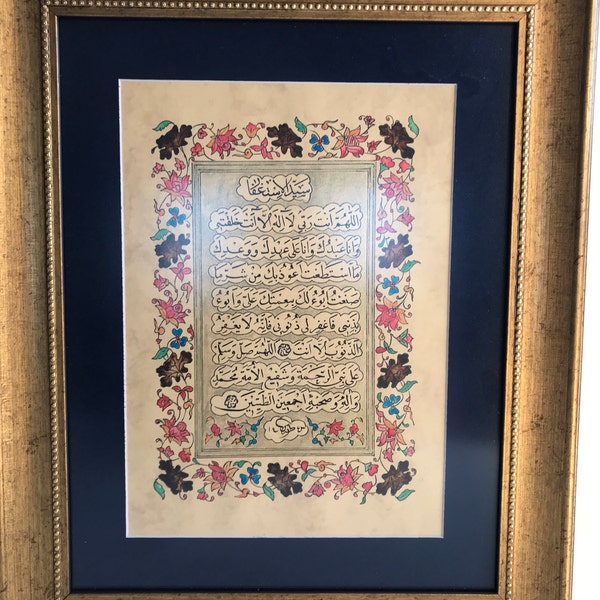 سيد الاستغفار
اللهم انت ربي لا اله الا انت خلقتني
وانا عبدك وانا على عهدك ووعدك
ما استطعت اعوذ بك من شر ما
صنعت ابوء لك بنعمتك علي وابوء
بذنبي فاغفر لي ذنوبي فانه لا يغفر
الذنوب الا انت اللهم صل وسلم
على نبي الرحمة وشفيع الامة محمد
وآله وصحبه اجمعين الطيبين